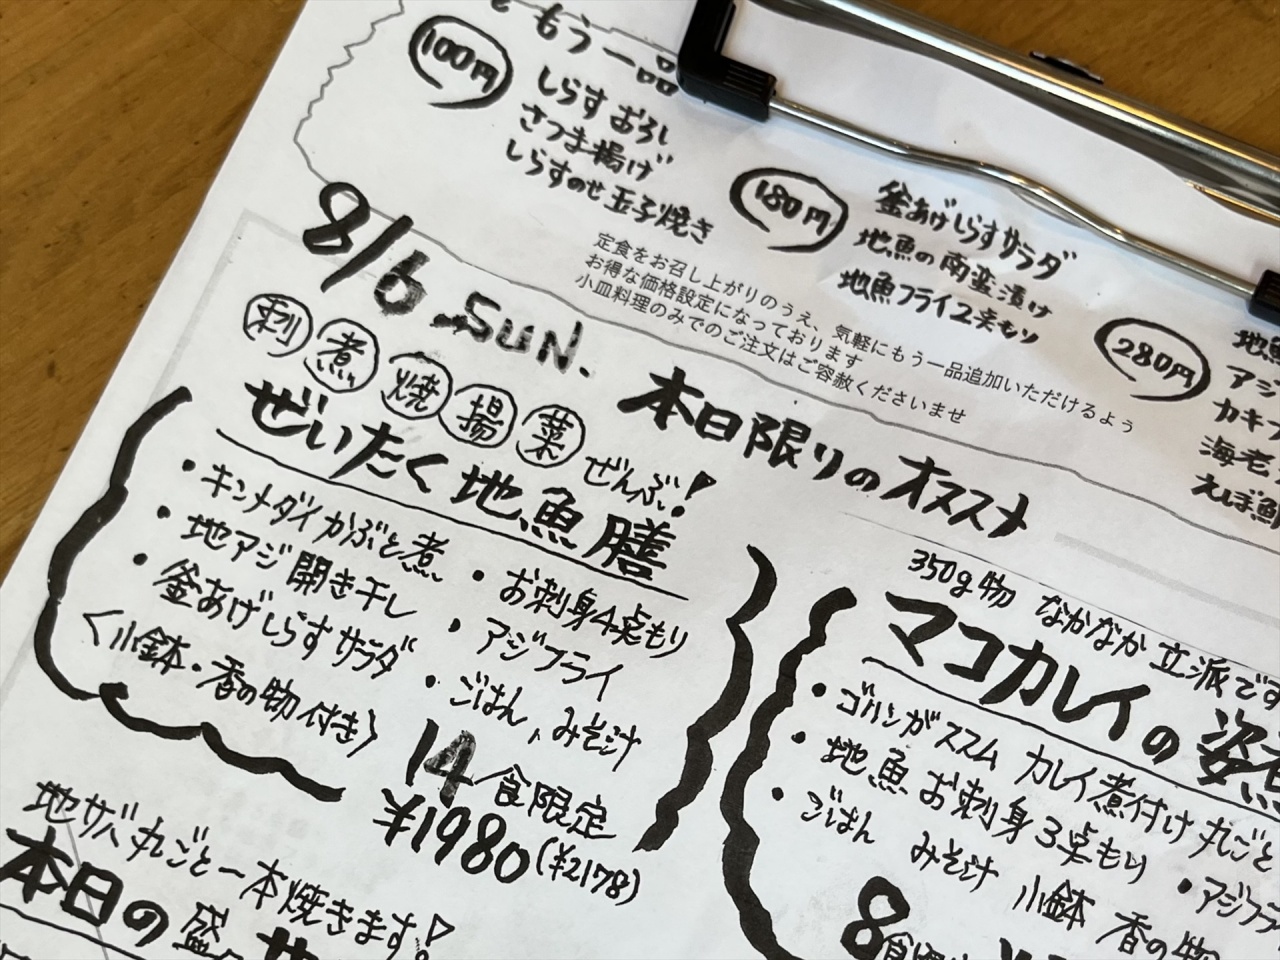 もう一品
100円
しらすおろし
さつま揚げ
しらすのせ玉子焼き
180円
釜あげしらすサラダ
地魚の南蛮漬け
地魚フライ2来もり
280円
地魚
アジ
カキフ
海老
えぼ鯛
定食をお召し上がりのうえ、気軽にもう一品追加いただけるよう
お得な価格設定になっております
小皿料理のみでのご注文はご容赦くださいませ
8/6 SUN. 本日限りのオススメ
刺 煮 焼 揚 菜 ぜんぶ!
ぜいたく地魚膳
・キンメダイかぶと煮
・地アジ開き干し
・釜あげしらすサラダ
〈小鉢・香の物付き〉
・お刺身4点もり
・アジフライ
・ごはん、みそ汁
14食限定
¥1980(¥2178)
350g物 なかなか立派です
マコカレイの姿煮
・ゴハンがススム カレイ煮付け丸ごと
・地魚お刺身3点もり ・アジフラ
・ごはん みそ汁 小鉢 香の物
8食限
地サバ丸ごと一本焼きます!
本日の盛